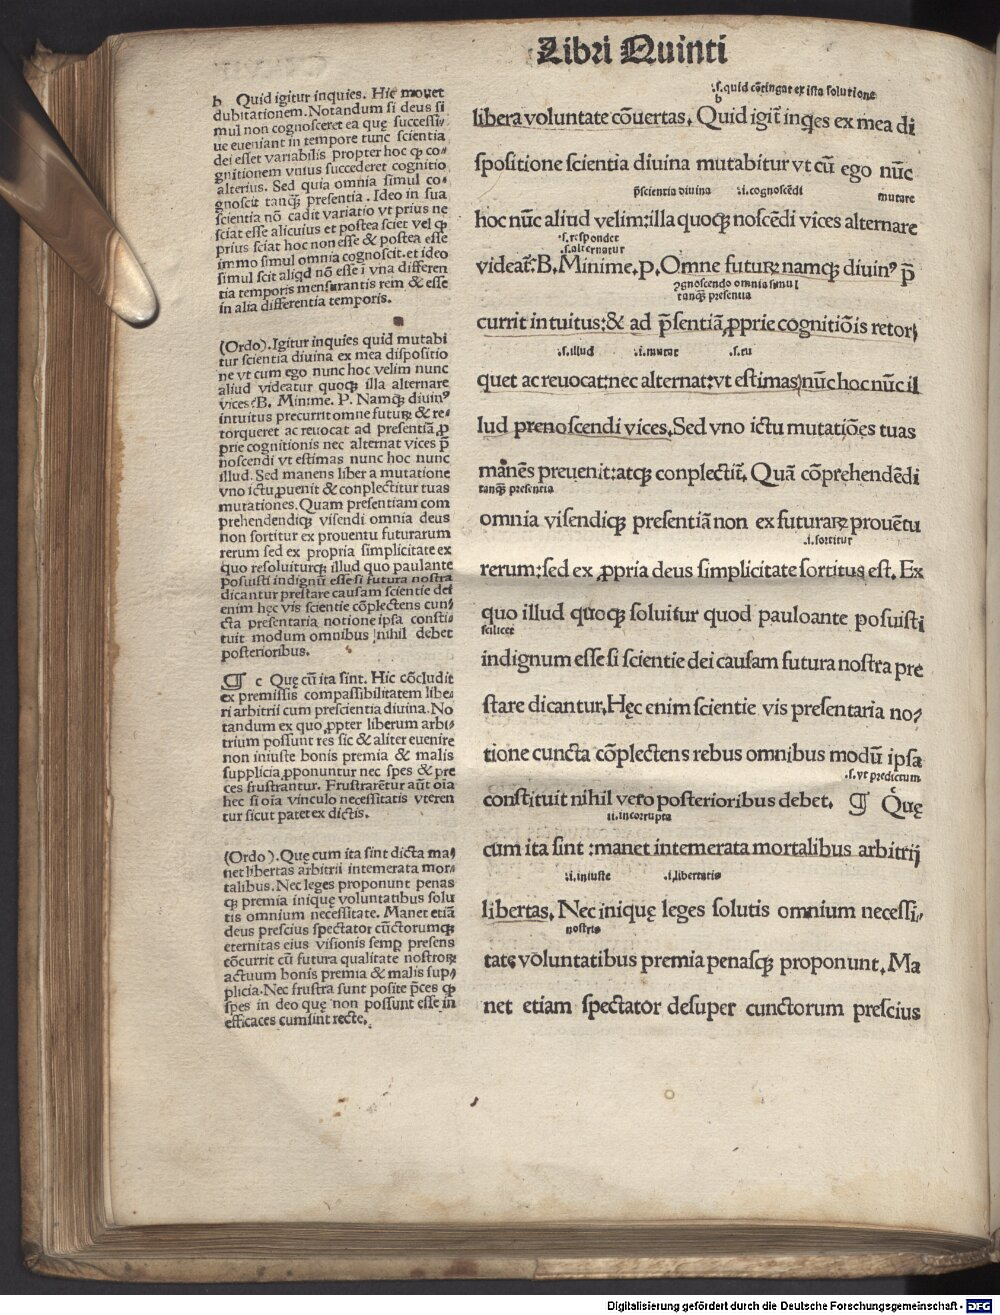 Libri Quinti
b Quid igitur inquies. Hic mouet
dubitationem. Notandum si deus si
mul non cognosceret ea quę successi⸗
ue eueniant in tempore tunc scientia
dei esset variabilis propter hoc ꝙ co⸗
gnitionem vnius succederet cognitio
alterius. Sed quia omnia simul co⸗
gnoscit tanqꝫ presentia. Ideo in sua
scientia nō cadit variatio vt prius ne
sciat esse alicuius et postea sciet vel ꝙ
prius sciat hoc non esse & postea esse
immo simul omnia cognoscit. et ideo
simul scit aliqd nō esse i vna differen
tia temporis mensurantis rem & esse
in alia differentia temporis.
(Ordo). Igitur inquies quid mutabi
tur scientia diuina ex mea dispositio
ne vt cum ego nunc hoc velim nunc
aliud videatur quoqꝫ illa alternare
vices? B. Minime. P. Namqꝫ diuinꝰ
intuitus precurrit omne futurꝝ & re⸗
torqueret ac reuocat ad presentiā ꝓ
prie cognitionis nec alternat vices p̄
noscendi vt estimas nunc hoc nunc
illud. Sed manens liber a mutatione
vno ictu ꝓuenit & conplectitur tuas
mutationes. Quam presentiam com
prehendendiqꝫ visendi omnia deus
non sortitur ex prouentu futurarum
rerum sed ex propria simplicitate ex
quo resoluiturqꝫ illud quo paulante
posuisti indignū esse si futura nostra
dicantur prestare causam scientie dei
enim hęc vis scientie cōplectens cun⸗
cta presentaria notione ipsa consti⸗
tuit modum omnibus nihil debet
posterioribus.
¶ c Quę cū ita sint. Hic cōcludit
ex premissis compassibilitatem libe⸗
ri arbitrii cum prescientia diuina. No
tandum ex quo ꝓpter liberum arbi⸗
trium possunt res sic & aliter euenire
non iniuste bonis premia & malis
supplicia ꝓponuntur nec spes & pre
ces frustrantur. Frustrarētur aūt oīa
hec si oīa vinculo necessitatis vteren
tur sicut patet ex dictis.
(Ordo). Quę cum ita sint dicta ma⸗
net libertas arbitrii intemerata mor⸗
talibus. Nec leges proponunt penas
qꝫ premia iniquę voluntatibus solu
tis omnium necessitate. Manet etiā
deus prescius spectator cūctorumqꝫ
eternitas eius visionis semp̱ presens
cōcurrit cū futura qualitate nostroꝝ
actuum bonis premia & malis sup⸗
plicia. Nec frustra sunt posite p̄ces qꝫ
spes in deo quę non possunt esse in
efficaces cum sint recte.
.s. quid cōtingat ex ista solutione
b
libera voluntate cōuertas. Quid igit̄ inqͥes ex mea di
spositione scientia diuina mutabitur vt cū ego nūc
p̄scientia diuina .i. cognoscēdi mutare
hoc nūc aliud velim: illa quoqꝫ noscēdi vices alternare
.s. respondet
.s. alternatur
videat̄: B. Minime. P. Omne futurꝝ namqꝫ diuinꝰ p̄
ꝯgnoscendo omnia simul
tanqꝫ presentia
currit intuitus: & ad p̄sentiā ꝓprie cognitiōis retor⸗
.s. illud .i. mutat .s. tu
quet ac reuocat: nec alternat: vt estimas nūc hoc nūc il
lud prenoscendi vices. Sed vno ictu mutatiōes tuas
manēs preuenit: atqꝫ conplectit̄. Quā cōprehendēdi
tanqꝫ presentia
omnia visendiqꝫ presentiā non ex futurarꝝ prouētu
.i. sortitur
rerum: sed ex ꝓpria deus simplicitate sortitus est. Ex
quo illud quoqꝫ soluitur quod pauloante posuisti
scilicet
indignum esse si scientie dei causam futura nostra pre
stare dicantur. Hęc enim scientie vis presentaria no⸗
tione cuncta cōplectens rebus omnibus modū ipsa
.s. vt predictum
c
constituit nihil vero posterioribus debet. ¶ Quę
ii. incorrupta
cum ita sint: manet intemerata mortalibus arbitrij
.i. iniuste .i. libertatis
libertas. Nec iniquę leges solutis omnium necessi⸗
nostris
tate voluntatibus premia penasqꝫ proponunt. Ma
net etiam spectator desuper cunctorum prescius
Digitalisierung gefördert durch die Deutsche Forschungsgemeinschaft - DFG